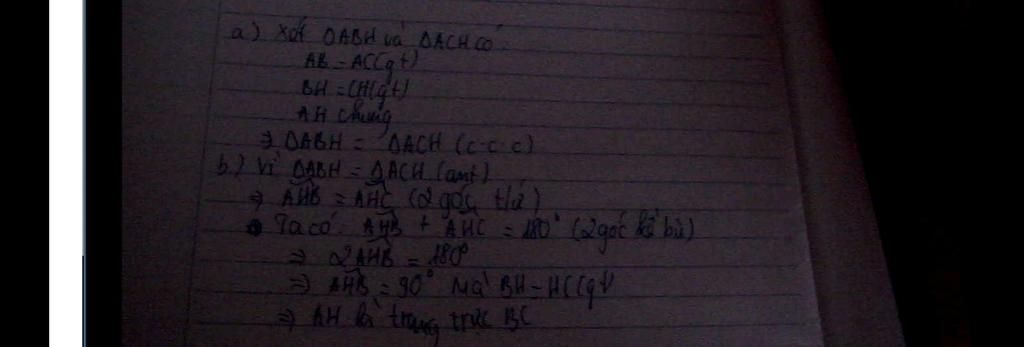 a) Xét ΔABH và ΔACH có:
AB = AC(gt)
BH = CH(gt)
AH chung
⇒ ΔABH = ΔACH (c.c.c)
b) Vì ΔABH = ΔACH (cmt)
⇒ AHB = AHC (2 góc t/ứ)
Ta có: AHB + AHC = 180° (2 góc kề bù)
⇒ 2AHB = 180°
⇒ AHB = 90° Mà BH = HC(gt)
⇒ AH là trung trực BC